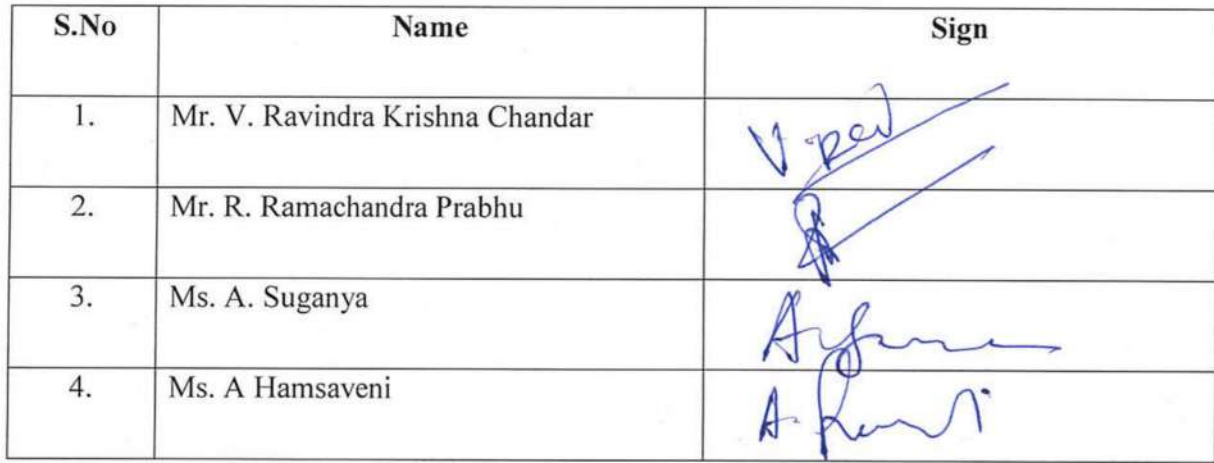 S.No Name Sign
1. Mr. V. Ravindra Krishna Chandar
2. Mr. R. Ramachandra Prabhu
3. Ms. A. Suganya
4. Ms. A Hamsaveni